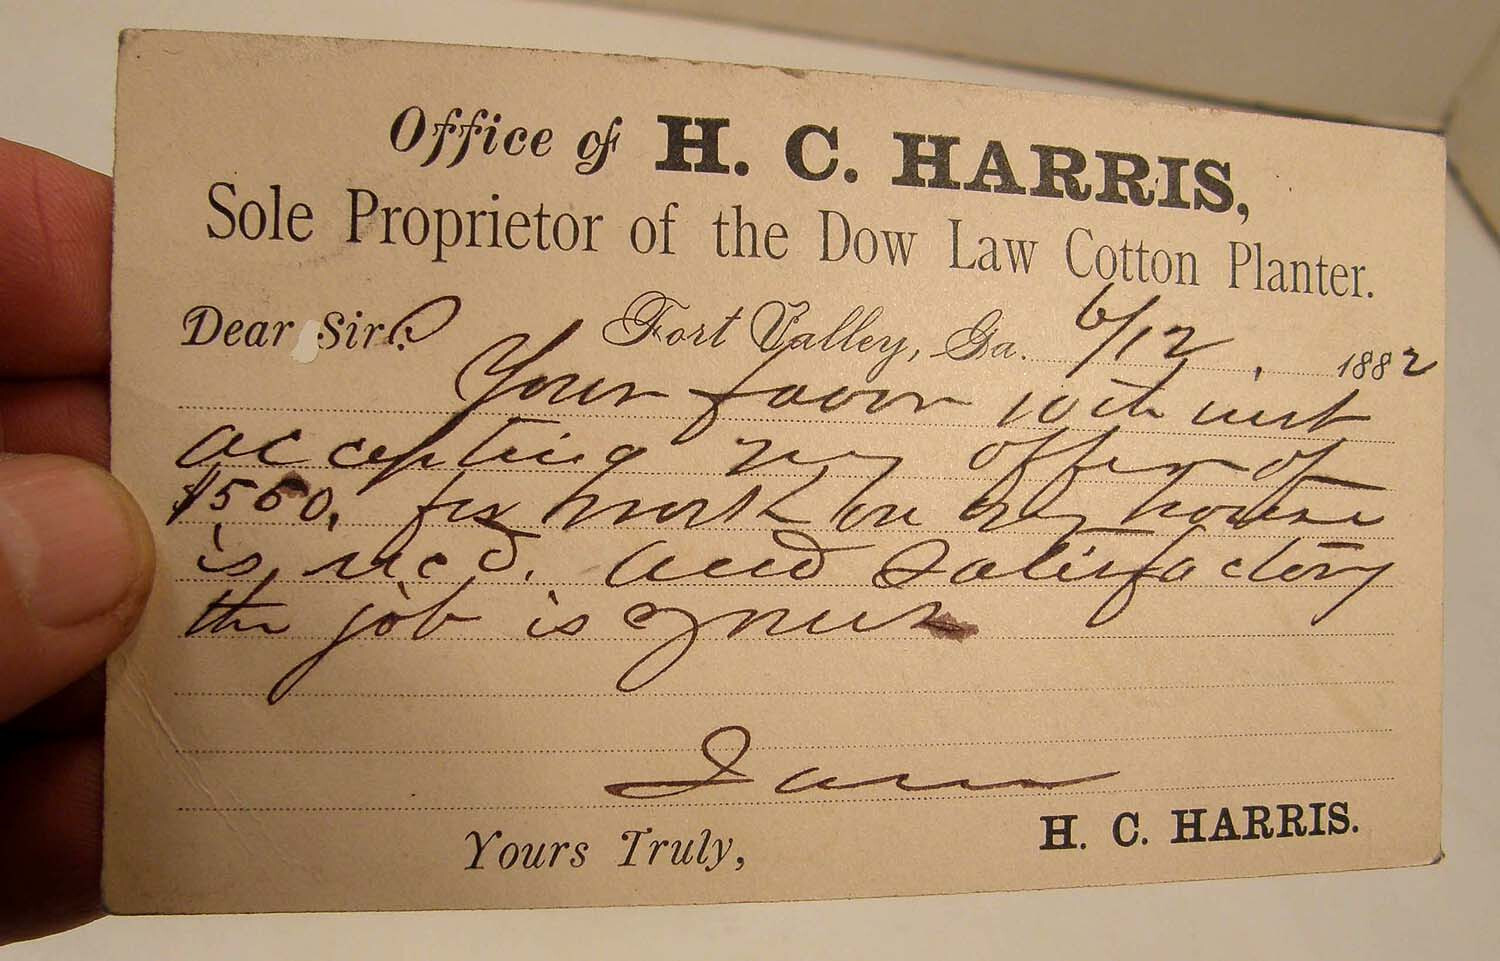 Office of H. C. HARRIS,
Sole Proprietor of the Dow Law Cotton Planter.
Dear Sir: Fort Valley, Ga. 6/12, 1882
Your favor 10th inst
accepting my offer of
$550. for work on my house
is rec'd. and satisfactory
the job is yours
I am
Yours Truly, H. C. HARRIS.